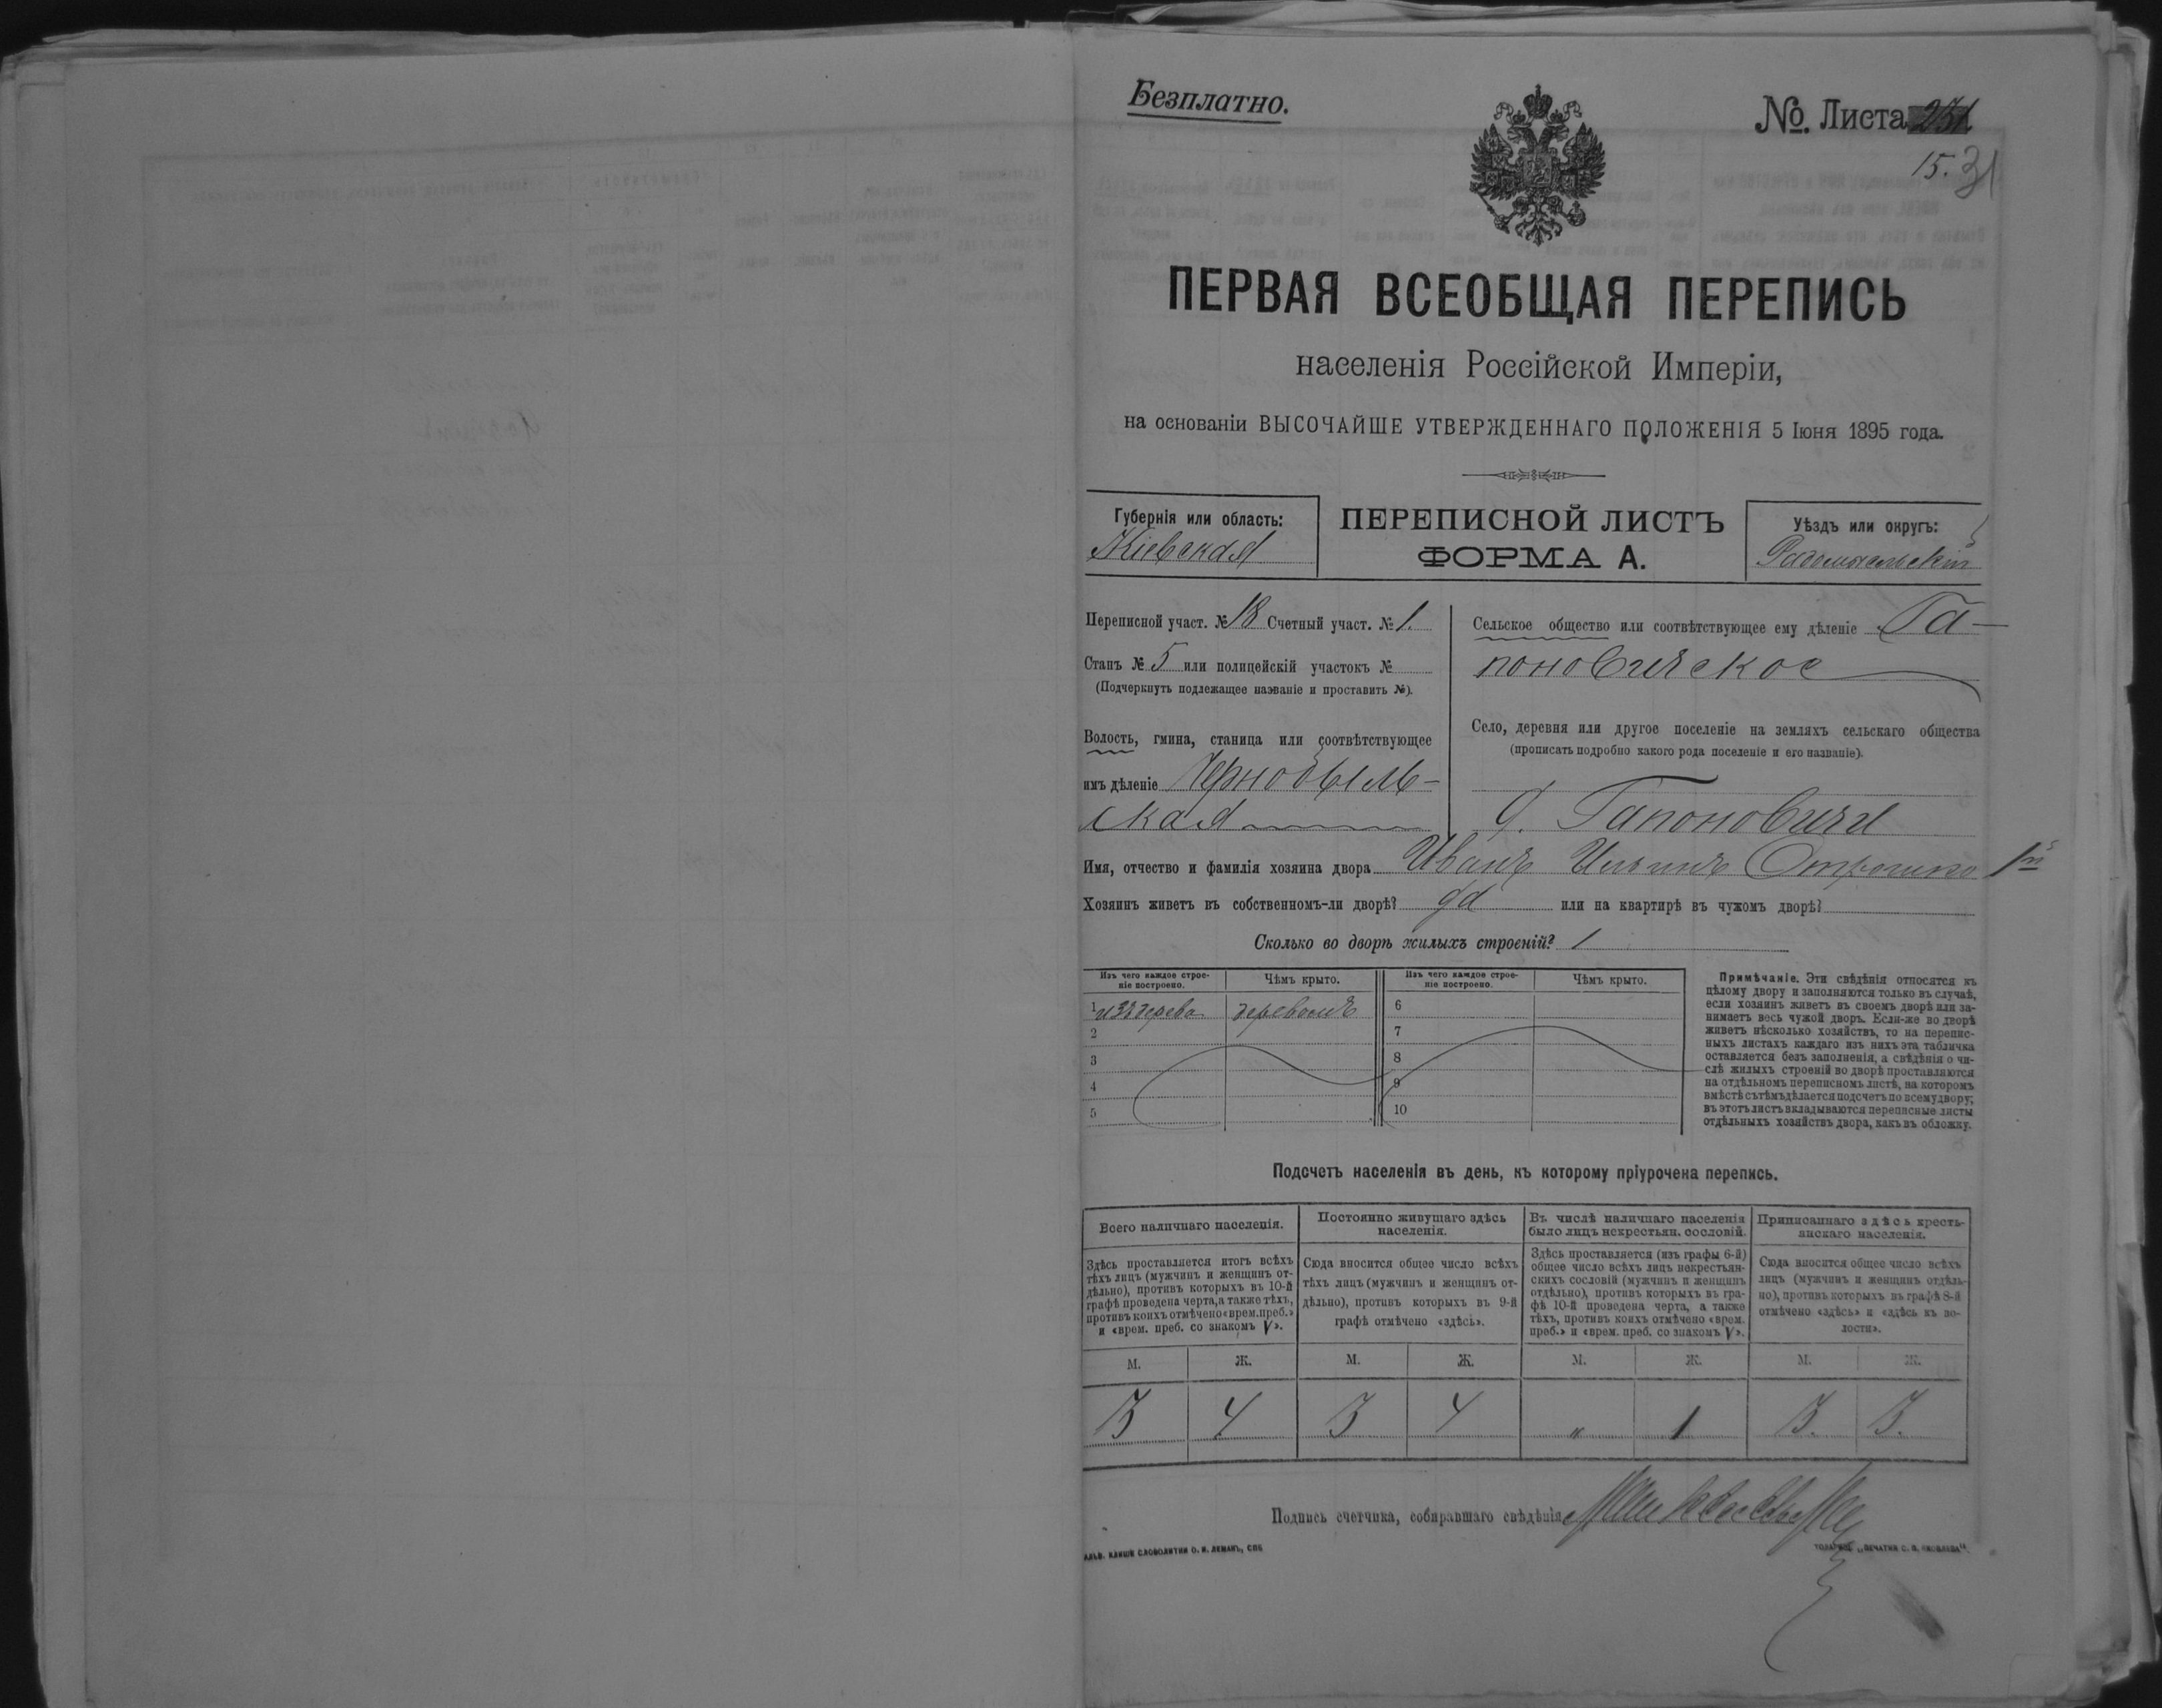 Безплатно.
№. Листа
15. 31
ПЕРВАЯ ВСЕОБЩАЯ ПЕРЕПИСЬ
населенія Россійской Имперіи,
на основаніи ВЫСОЧАЙШЕ УТВЕРЖДЕННАГО ПОЛОЖЕНІЯ 5 Іюня 1895 года.
Губернія или область:
Кіевская
ПЕРЕПИСНОЙ ЛИСТЪ
ФОРМА А.
Уѣздъ или округъ:
Радомысльскій
Переписной участ. № 18 Счетный участ. № 1.
Станъ № 5 или полицейскій участокъ №
(Подчеркнуть подлежащее названіе и проставить №).
Волость, гмина, станица или соотвѣтствующее
имъ дѣленіе Чернобыль-
ская
Сельское общество или соотвѣтствующее ему дѣленіе Га-
поновичское
Село, деревня или другое поселеніе на земляхъ сельскаго общества
(прописать подробно какого рода поселеніе и его названіе).
д. Гапоновичи
Имя, отчество и фамилія хозяина двора Иванъ Ильинъ 1й
Хозяинъ живетъ въ собственномъ-ли дворѣ? да или на квартирѣ въ чужомъ дворѣ?
Сколько во дворѣ жилыхъ строеній? 1
Изъ чего каждое строе-
ніе построено.
Чѣмъ крыто.
Изъ чего каждое строе-
ніе построено.
Чѣмъ крыто.
1 изъ дерева деревомъ 6
2 7
3 8
4 9
5 10
Примѣчаніе. Эти свѣдѣнія относятся къ
цѣлому двору и заполняются только въ случаѣ,
если хозяинъ живетъ въ своемъ дворѣ или за-
нимаетъ весь чужой дворъ. Если-же во дворѣ
живетъ нѣсколько хозяйствъ, то на перепис-
ныхъ листахъ каждаго изъ нихъ эта табличка
оставляется безъ заполненія, а свѣдѣнія о чи-
слѣ жилыхъ строеній во дворѣ проставляются
на отдѣльномъ переписномъ листѣ, на которомъ
вмѣстѣ съ тѣмъ дѣлается подсчетъ по всему двору;
въ этотъ листъ вкладываются переписные листы
отдѣльныхъ хозяйствъ двора, какъ въ обложку.
Подсчетъ населенія въ день, къ которому пріурочена перепись.
Всего наличнаго населенія.
Здѣсь проставляется итогъ всѣхъ
тѣхъ лицъ (мужчинъ и женщинъ от-
дѣльно), противъ которыхъ въ 10-й
графѣ проведена черта, а также тѣхъ,
противъ коихъ отмѣчено «врем. преб.»
и «врем. преб. со знакомъ V».
Постоянно живущаго здѣсь
населенія.
Сюда вносится общее число всѣхъ
тѣхъ лицъ (мужчинъ и женщинъ от-
дѣльно), противъ которыхъ въ 9-й
графѣ отмѣчено «здѣсь».
Въ числѣ наличнаго населенія
было лицъ некрестьян. сословій.
Здѣсь проставляется (изъ графы 6-й)
общее число всѣхъ лицъ некрестьян-
скихъ сословій (мужчинъ и женщинъ
отдѣльно), противъ которыхъ въ гра-
фѣ 10-й проведена черта, а также
тѣхъ, противъ коихъ отмѣчено «врем.
преб.» и «врем. преб. со знакомъ V».
Приписаннаго здѣсь кресть-
янскаго населенія.
Сюда вносится общее число всѣхъ
лицъ (мужчинъ и женщинъ отдѣль-
но), противъ которыхъ въ графѣ 8-й
отмѣчено «здѣсь» и «здѣсь въ во-
лости».
М. Ж. М. Ж. М. Ж. М. Ж.
3 4 3 4 „ 1 3. 3.
Подпись счетчика, собиравшаго свѣдѣнія
КЛИШЕ СЛОВОЛИТНИ О. И. ЛЕМАНЪ, СПБ
ПЕЧАТНИ С. П. ЯКОВЛЕВА“.